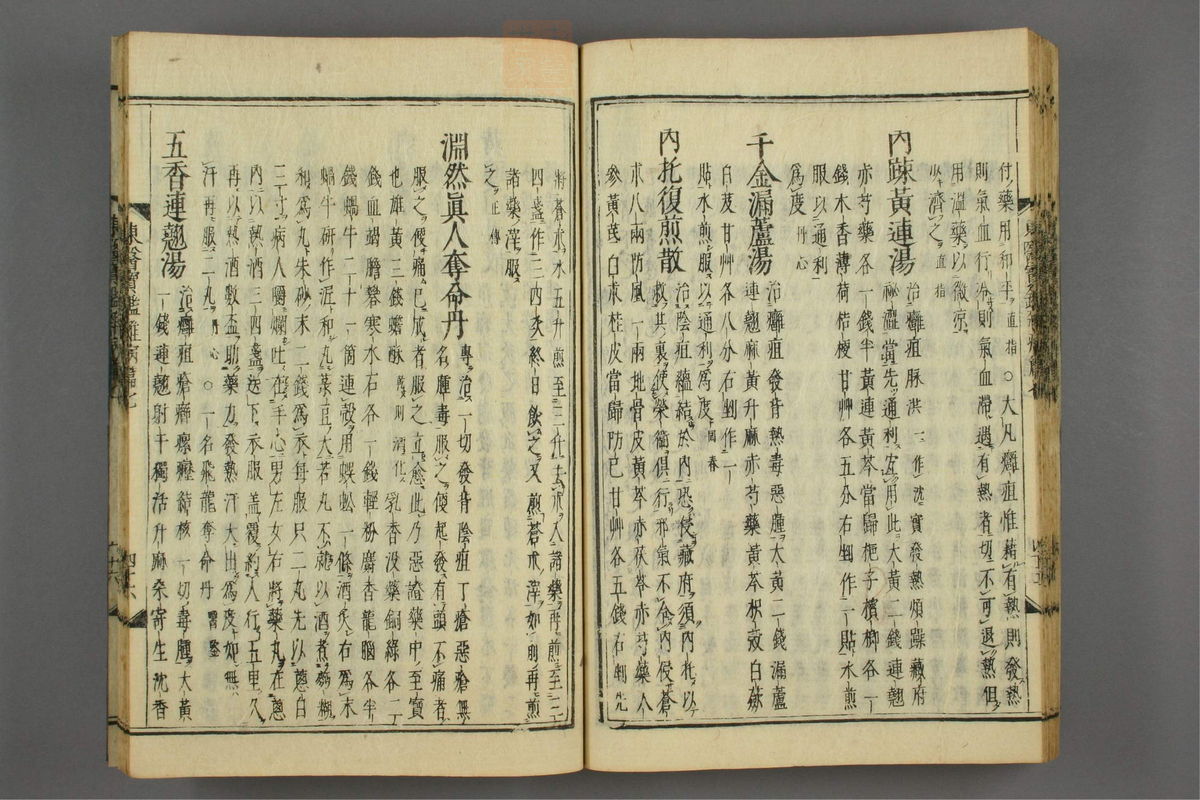 付藥用和平直指○大凡癰疽惟藉有熱則發熱
則氣血行分則氣血滯遇有熱者切不可退熱但
用溫藥以微涼
以濟之直指
內疎黃連湯
治癰疽脉洪一作沈實發熱煩躁藏府
秘澀當先通利宜用此大黃二錢連翹
赤芍藥各一錢半黃連黃芩當歸梔子檳榔各一
錢木香薄荷桔梗甘艸各五分右剉作一貼水煎
服以通利
爲度丹心
千金漏蘆湯
治癰疽發背熱毒惡腫大黃二錢漏蘆
連翹麻黃升麻赤芍藥黃芩枳殼白蘞
白芨甘艸各八分右剉作一
貼水煎服以通利爲度回春
內托復煎散
治陰疽蘊結於內恐侵藏府須內托以
救其裏使榮衞俱行邪氣不侵內蒼
朮八兩防風一兩地骨皮黃芩赤茯苓赤芍藥人
參黃芪白朮桂皮當歸防己甘艸各五錢右剉先
將蒼朮水五升煎至三升去朮入諸藥再煎至三
四盞作三四次終日飮之又煎蒼朮滓如前再煎
諸藥滓服
之正傳
淵然眞人奪命丹
專治一切發背陰疽丁瘡惡瘡無
名腫毒服之便起發有頭不痛者
服之便痛已成者服之立愈此乃惡證藥中至寶
也雄黃三錢蟾酥乳香没藥銅綠各二
錢血竭膽礬寒水石各一錢輕粉麝香龍腦各半
錢蝸牛二十一箇連殼用蜈蚣一條酒炙右爲末
蝸牛硏作泥和丸菉豆大若丸不就以酒煮麪糊
和爲丸朱砂末二錢爲衣每服只二丸先以葱白
三寸病人嚼爛吐在手心男左女右將藥丸在葱
內以熱酒三四盞送下衣服盖覆約人行五里久
再以熱酒數盃助藥力發熱汗大出爲度如無
汗再服二丸丹心○一名飛龍奪命丹醫鑑
五香連翹湯
治癰疽瘡癤瘰癧結核一切毒腫大黃
一錢連翹射干獨活升麻桑寄生沈香